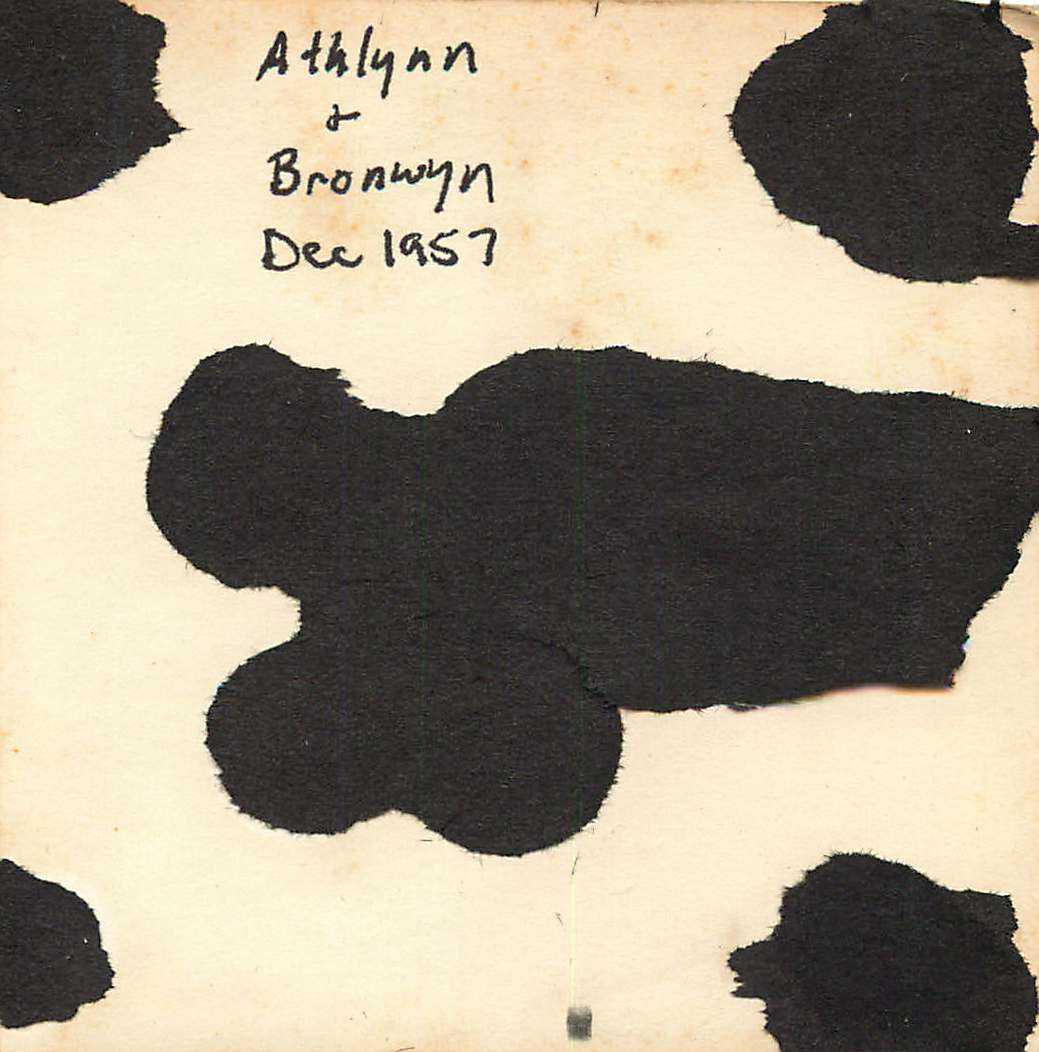 Athlynn
&
Bronwyn
Dec 1957